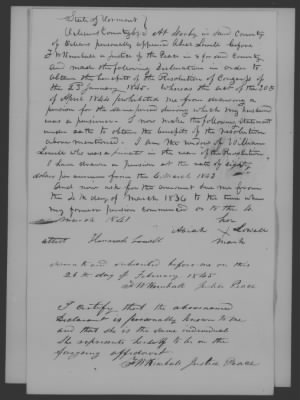 State of Vermont }
Orleans County ss } At Derby in said County
of Orleans personally appeared Abiah Lowell before
F W Kimball a justice of the Peace in & for said County
and made the following Declaration in order to
obtain the benefits of the Resolution of Congress of
the 23^d January 1845. Whereas the act of the 30th
of April 1844 prohibited me from drawing a
pension for the same period during which my husband
was a pensioner. I now make the following statement
under oath to obtain the benefit of the resolution
above mentioned. I am the widow of William
Lowell who was a private in the war of the Revolution
I have drawn a pension at the rate of eighty
dollars per annum from the 4 March 1843
And now ask for the amount due me from
the 4th day of March 1836 to the time when
my former pension commenced or to the 4
March 1841
her
Abiah X Lowell
mark
attest Hannah Lowell
Sworn to and subscribed before me on this
26th day of February 1845
F W Kimball Justice Peace
I certify that the above named
Declarant is personally known to me
and that she is the same individual
she represents herself to be in the
foregoing affidavit
F W Kimball Justice Peace